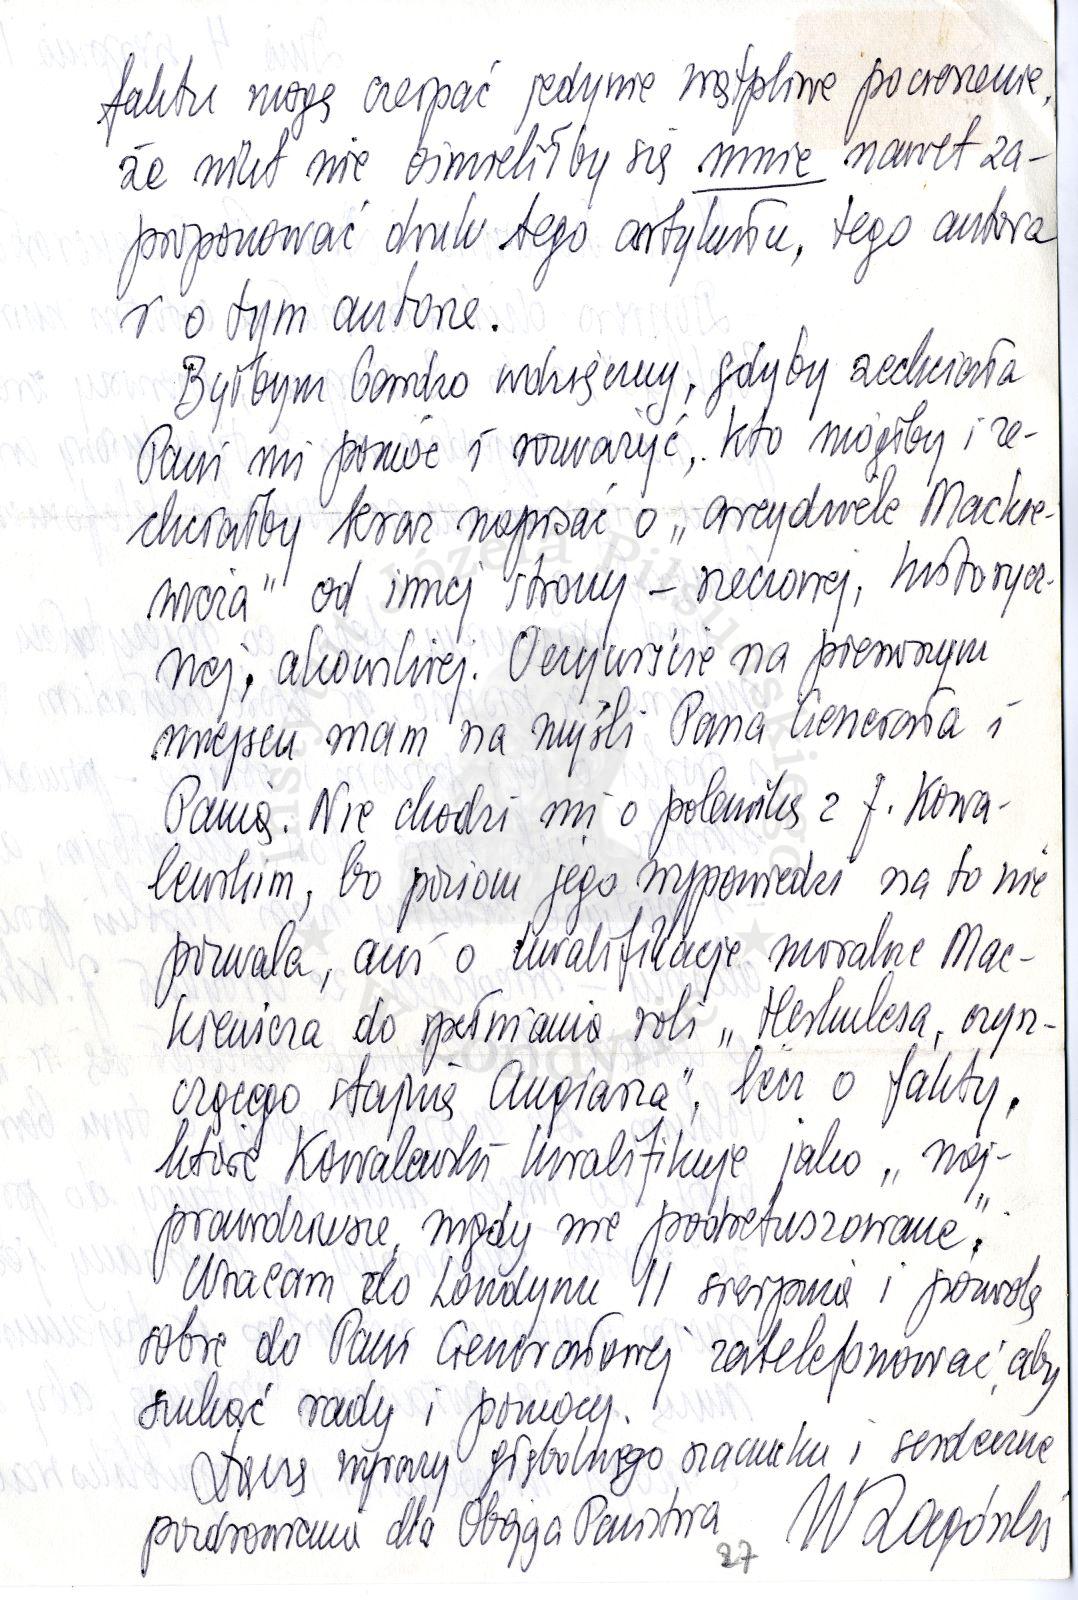 faktu mogę czerpać jedynie wątpliwe pocieszenie,
że nikt nie ośmieliłby się mnie nawet za-
proponować druku tego artykułu, tego autora
i o tym autorze.
Byłbym bardzo wdzięczny, gdyby zechciała
Pani mi pomóc i rozważyć, kto mógłby i ze-
chciałby teraz napisać o „arcydziele Mackie-
wicza" od innej strony – rzeczowej, historycz-
nej, akowskiej. Oczywiście na pierwszym
miejscu mam na myśli Pana Generała i
Panią. Nie chodzi mi o polemikę z J. Kowa-
lewskim, bo poziom jego wypowiedzi na to nie
pozwala, ani o kwalifikacje moralne Mac-
kiewicza do spełniania roli „Herkulesa, czysz-
czącego stajnię Augiasza", lecz o fakty,
które Kowalewski kwalifikuje jako „naj-
prawdziwsze, nigdy nie podretuszowane".
Wracam do Londynu 11 sierpnia i pozwolę
sobie do Pani Generałowej zatelefonować, aby
szukać rady i pomocy.
Łączę wyrazy głębokiego szacunku i serdeczne
pozdrowienia dla Obojga Państwa
WZagórski
27
Instytut Józefa Piłsudskiego
w Londynie